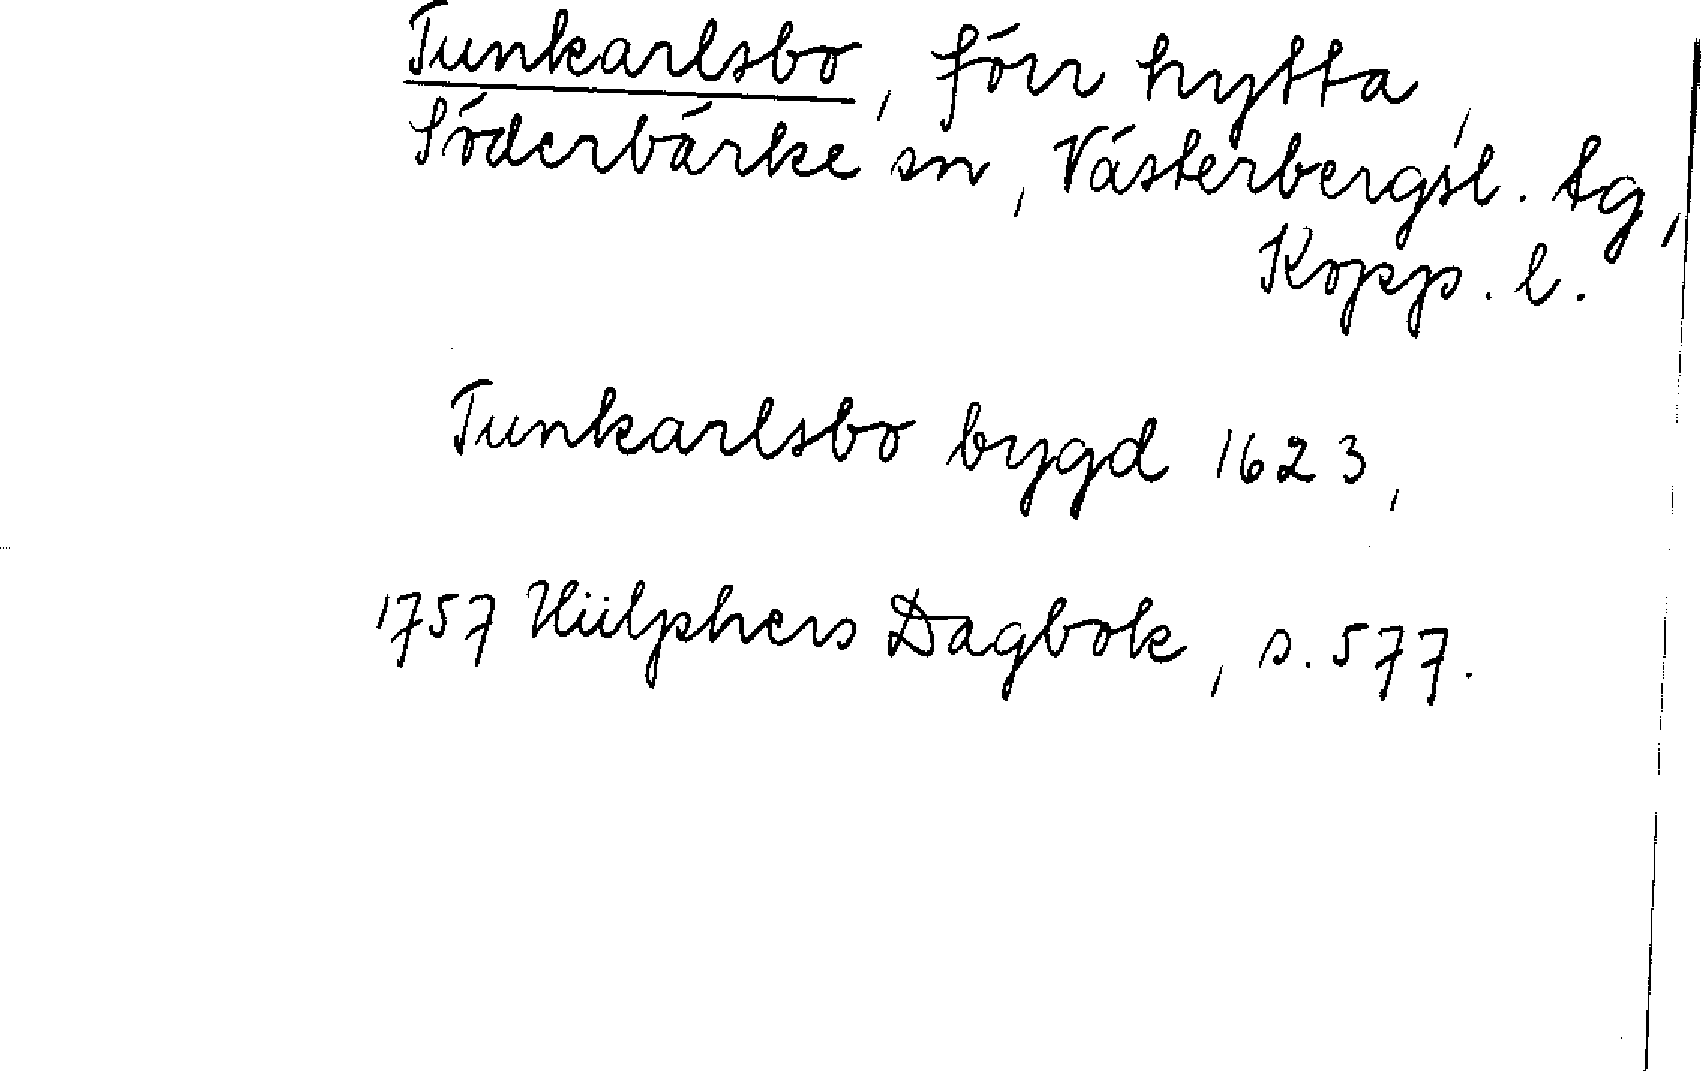 Tunkarlsbo, förr hytta,
Söderbärke sn, Västerbergsl. tg,
Kopp. l.
Tunkarlsbo bygd 1623,
1757 Hülphers Dagbok, s. 577.